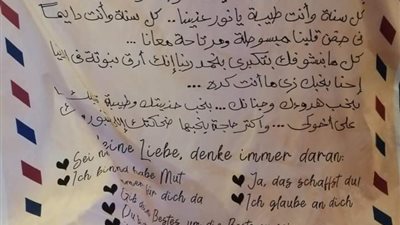 كل سنة وأنت طيبة يا نور عنينا.. كل سنة وأنت دايماً
في حضن قلبنا مبسوطة ومرتاحة معانا...
كل ما بنشوفك بتكبري بنحمد ربنا إنك أرق بنوتة في الدنيا
إحنا بنحبك زي ما أنت كده...
بنحب هدوءك وحنانك... بنحب حنيتك وطيبة قلبك
على أخوكي... وأكتر حاجة بنحبها ضحكتك
eine Liebe, denke immer daran:
Sei
Ich bin
habe Mut
immer für dich da
Gib dein Bestes, um
Du
Ja, das schaffst du!
Ich glaube an dich